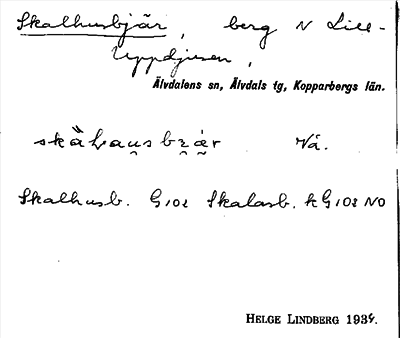 Skalhusbjär, berg N Lill-
Uppdjusen,
Älvdalens sn, Älvdals tg, Kopparbergs län.
Vå.
Skalhusb. G 102 Skalasb. k G 102 NO
HELGE LINDBERG 1934.